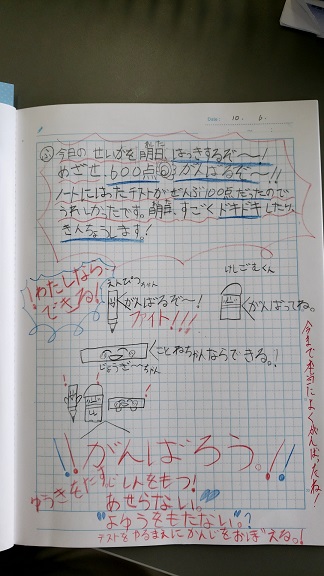 Date 10. 6.
㋛今日のせいかを明日、はっきするぞ〜!
めざせ、600点◎がんばるぞ〜!!
ノートにはったテストがぜんぶ100点だったので
うれしかったです。明日、すごくドキドキしたり、
きんちょうします!
わたしなら
できる!
えんぴつちゃん
がんばるぞ〜!
ファイト!!!
けしごむくん
がんばってね。
ことねちゃんならできる。!
じょうぎ〜ちゃん
今まで本当によくがんばったね!
!!がんばろう。!!
ゆうきをだす。
じしんをもつ!
あせらない。
"よゆうをもたない。"?
テストをやるまえにかんじをおぼえるo!